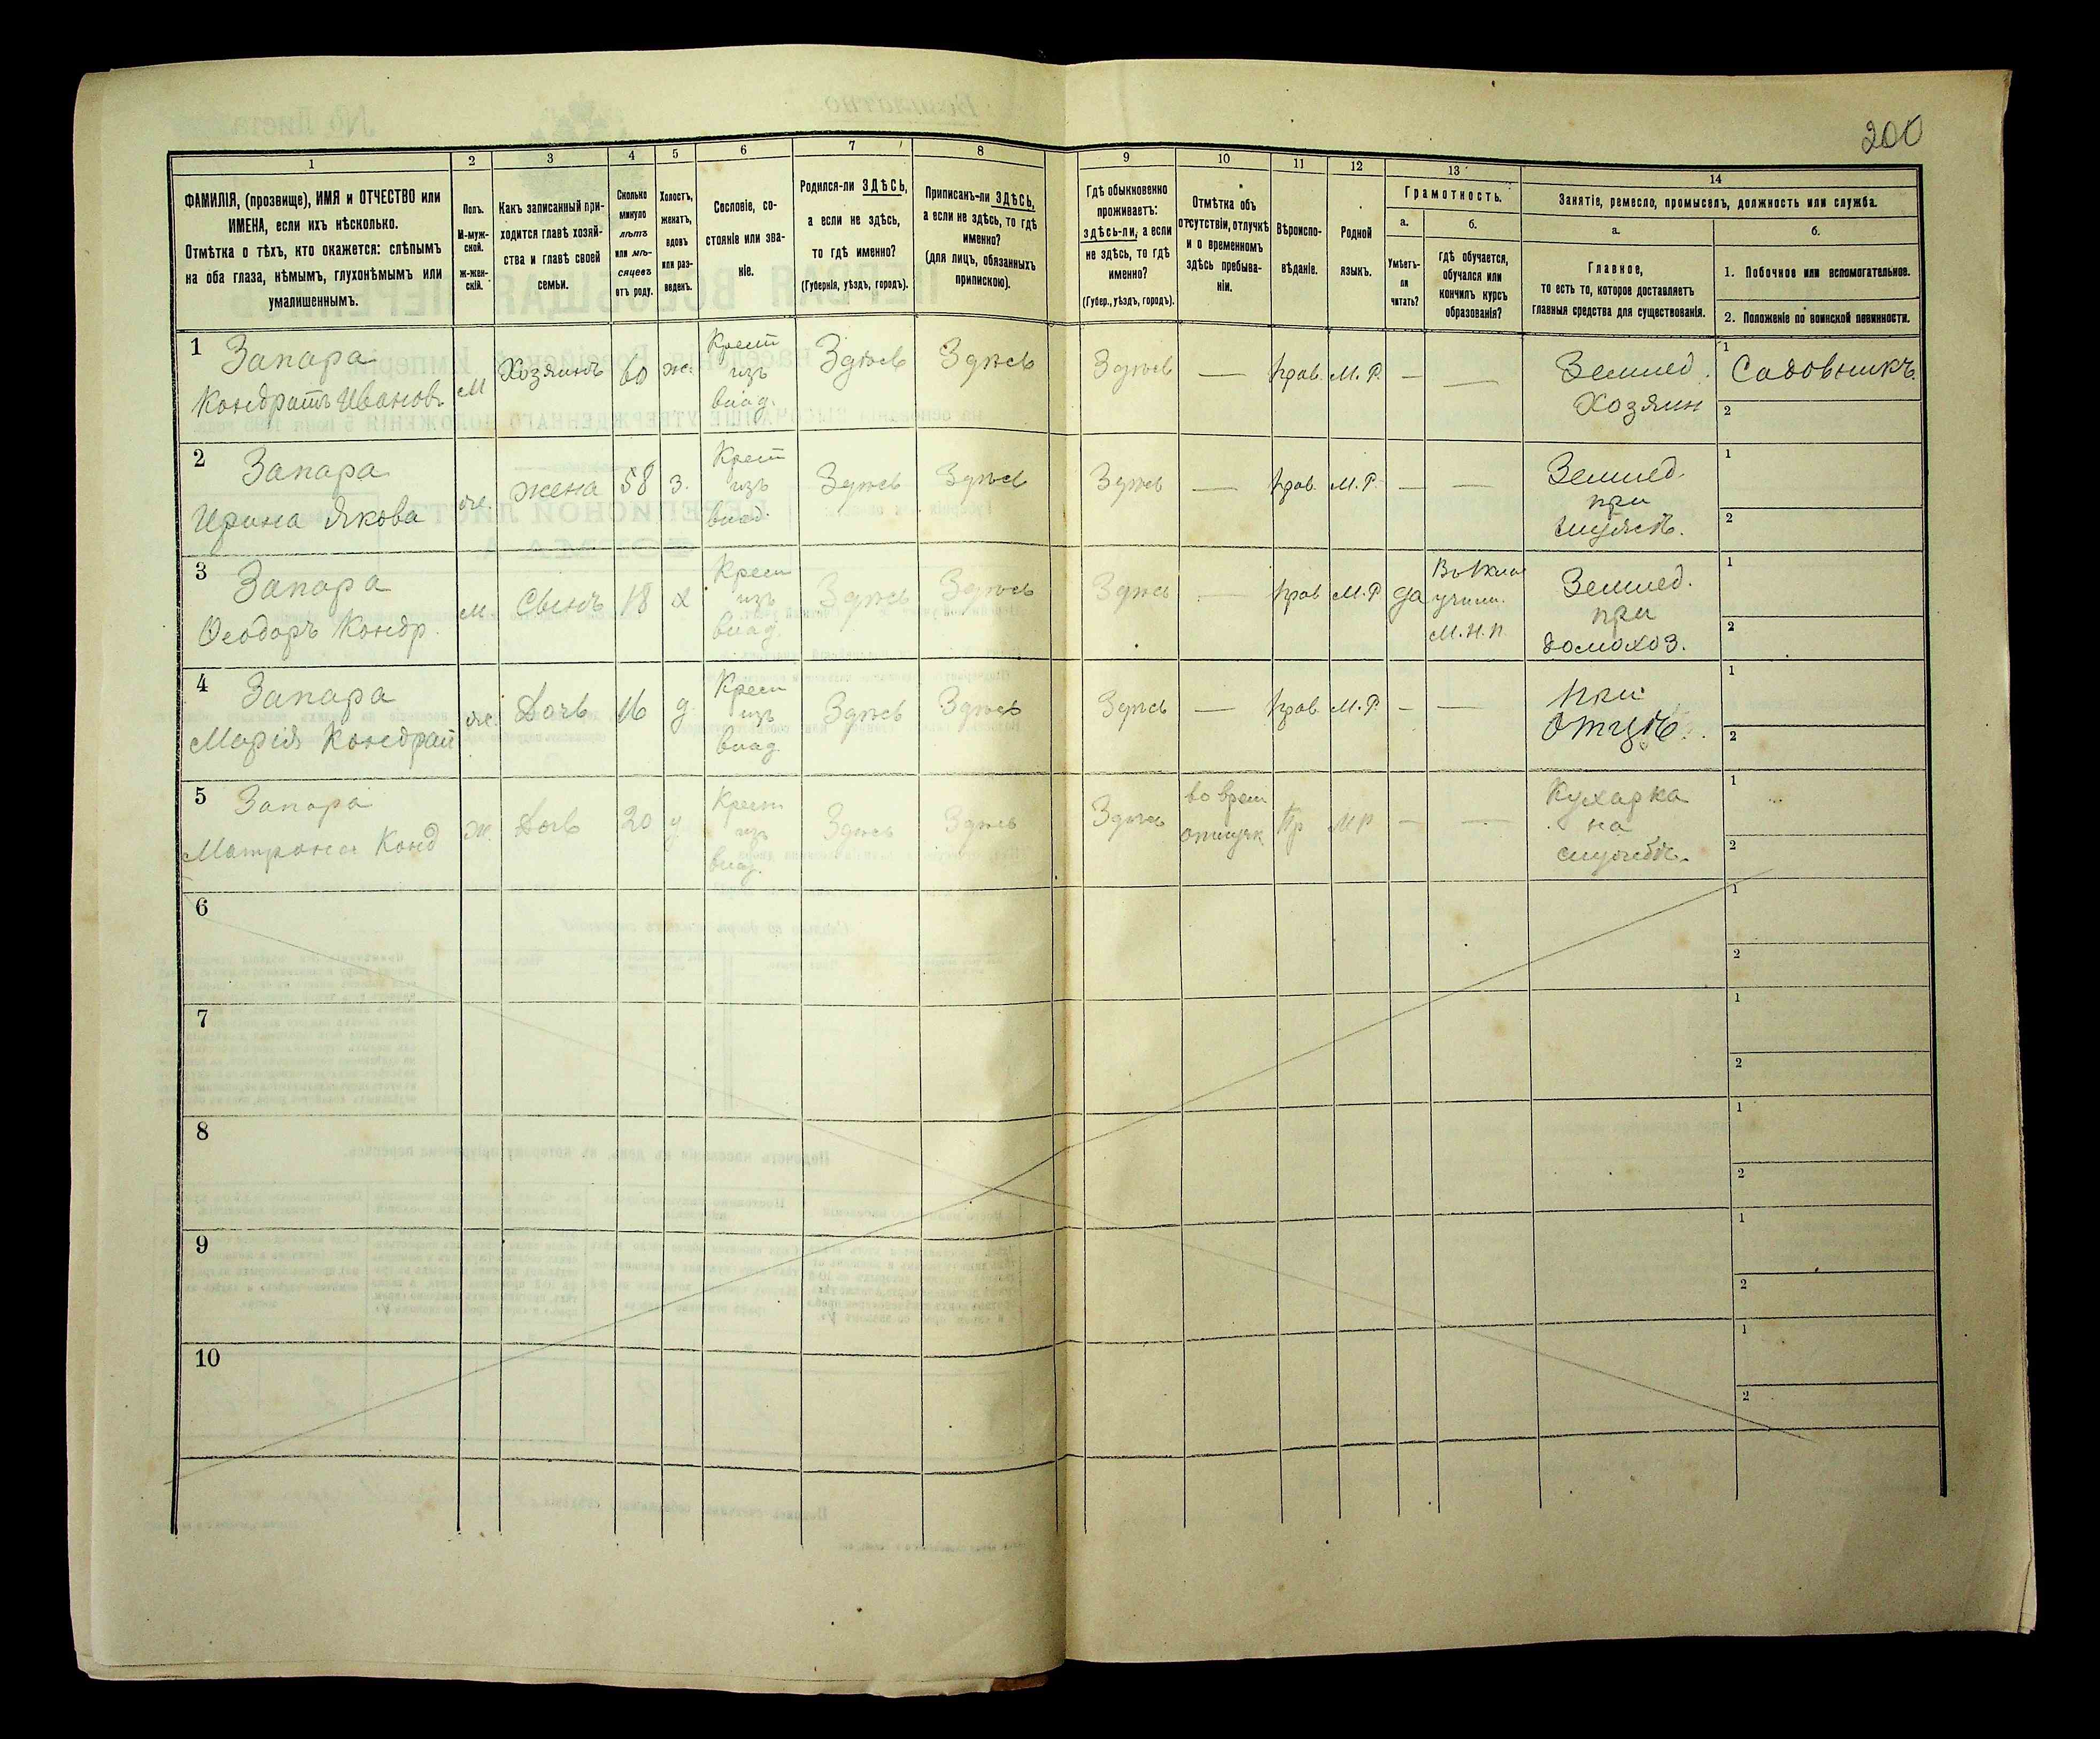 200
1
2
3
4
5
6
7
8
9
10
11
12
13
14
ФАМИЛІЯ, (прозвище), ИМЯ и ОТЧЕСТВО или
ИМЕНА, если ихъ нѣсколько.
Отмѣтка о тѣхъ, кто окажется: слѣпымъ
на оба глаза, нѣмымъ, глухонѣмымъ или
умалишеннымъ.
Полъ.
М-муж-
ской.
ж-жен-
скій.
Какъ записанный при-
ходится главѣ хозяй-
ства и главѣ своей
семьи.
Сколько
минуло
лѣтъ
или мѣ-
сяцевъ
отъ роду.
Холостъ,
женатъ,
вдовъ
или раз-
веденъ.
Сословіе, со-
стояніе или зва-
ніе.
Родился-ли ЗДѢСЬ,
а если не здѣсь,
то гдѣ именно?
(Губернія, уѣздъ, городъ).
Приписанъ-ли ЗДѢСЬ,
а если не здѣсь, то гдѣ
именно?
(для лицъ, обязанныхъ
припискою).
Гдѣ обыкновенно
проживаетъ:
здѣсь-ли, а если
не здѣсь, то гдѣ
именно?
(Губер., уѣздъ, городъ).
Отмѣтка объ
отсутствіи, отлучкѣ
и о временномъ
здѣсь пребыва-
ніи.
Вѣроиспо-
вѣданіе.
Родной
языкъ.
Грамотность.
а.
Умѣетъ-
ли
читать?
б.
гдѣ обучается,
обучался или
кончилъ курсъ
образованія?
Занятіе, ремесло, промыселъ, должность или служба.
а.
Главное,
то есть то, которое доставляетъ
главныя средства для существованія.
б.
1. Побочное или вспомогательное.
2. Положеніе по воинской повинности.
1 Запара
Кондратъ Иванов.
М
Хозяинъ
60
ж.
Крест
изъ
влад.
Здѣсь
Здѣсь
Здѣсь
—
Прав.
М. Р.
—
—
Землед.
Хозяин
1 Садовникъ.
2
2 Запара
Ирина Якова
ж.
жена
58
з.
Крест
изъ
влад.
Здѣсь
Здѣсь
Здѣсь
—
Прав.
М. Р.
—
—
Землед.
при
1
2
3 Запара
Ѳеодоръ Кондр.
м.
Сынъ
18
х
Крест
изъ
влад.
Здѣсь
Здѣсь
Здѣсь
—
Прав
М. Р
да
учили.
М. Н. П.
Землед.
при
домохоз.
1
2
4 Запара
Марія Кондрат
ж.
Дочь
16
д.
Крест
изъ
влад.
Здѣсь
Здѣсь
Здѣсь
—
Прав.
М. Р.
—
—
при
отцѣ.
1
2
5 Запара
Матрона Конд
ж.
Дочь
20
д
Крест
изъ
влад.
Здѣсь
Здѣсь
Здѣсь
во врем
отлучк.
Пр
М Р
—
—
Кухарка
на
службѣ.
1
2
6
1
2
7
1
2
8
1
2
9
1
2
10
1
2